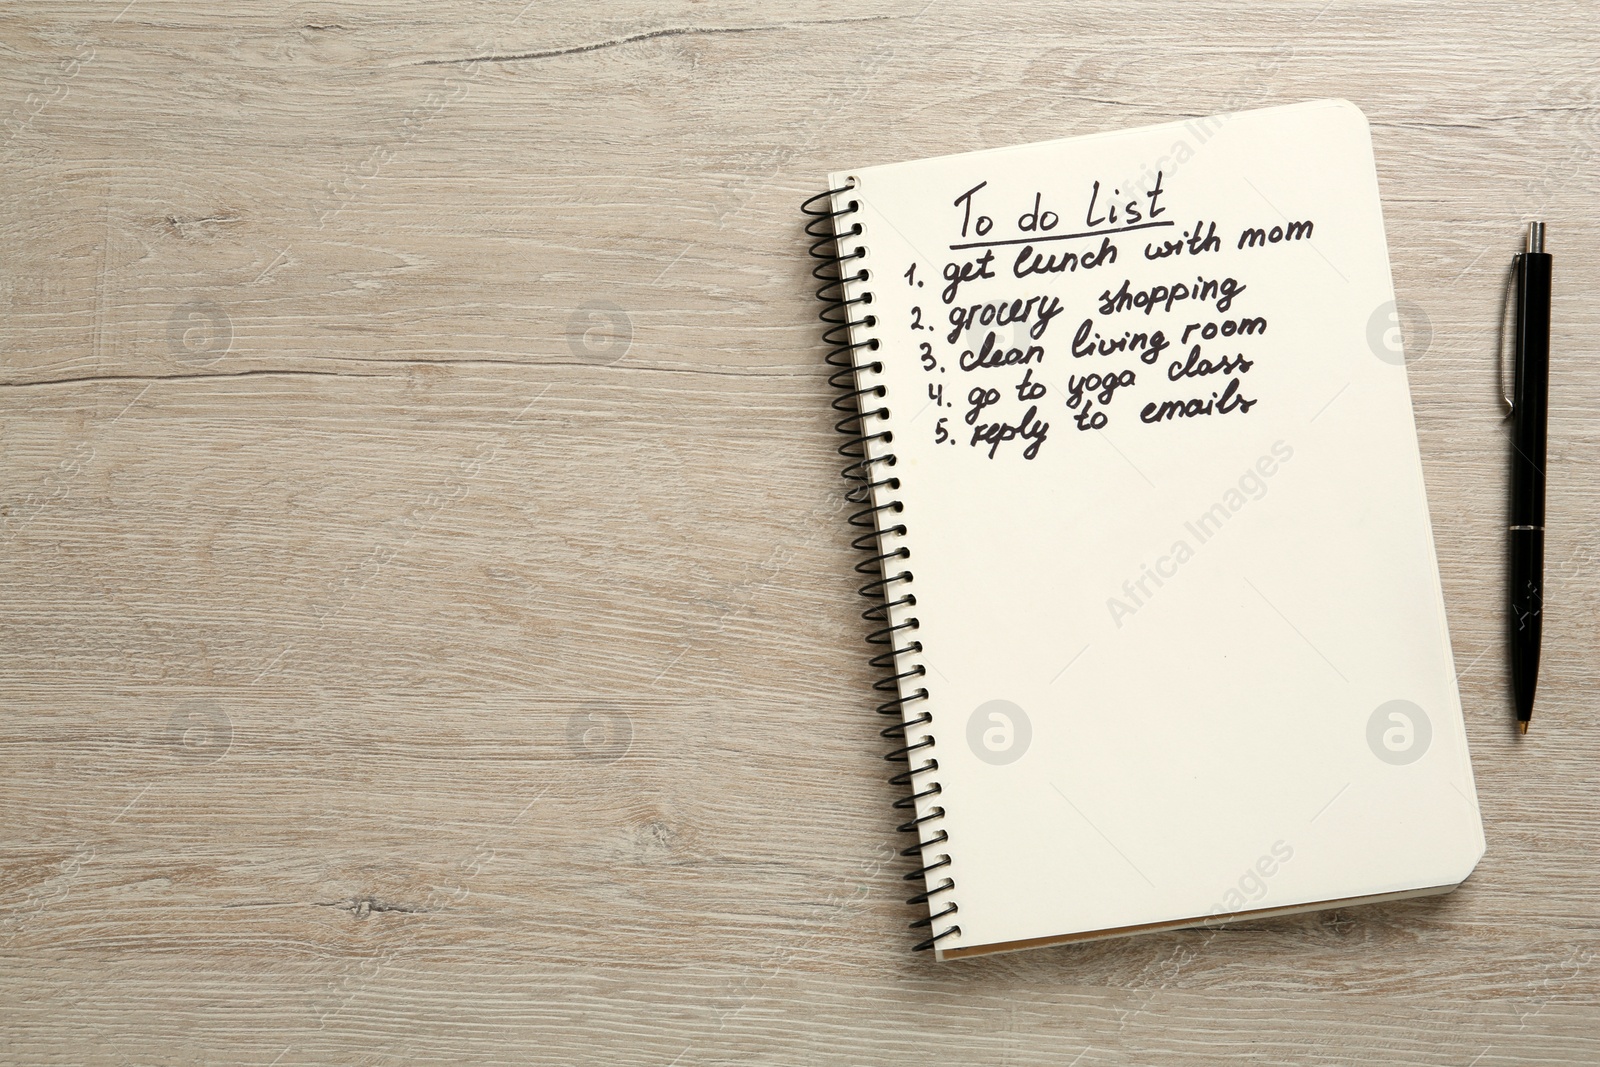 To do List
1. get lunch with mom
2. grocery shopping
3. clean living room
4. go to yoga class
5. reply to emails
Africa Images